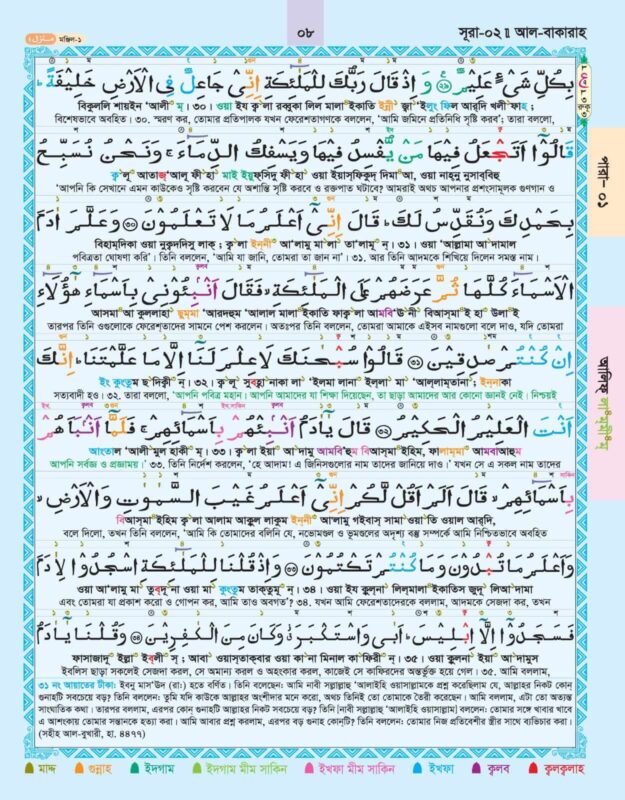 منزل ১ মঞ্জিল-১
০৮
সূরা-০২ঃ আল-বাকারাহ
بِكُلِّ شَيْءٍ عَلِيْمٌ ﴿٢٩﴾ وَ اِذْ قَالَ رَبُّكَ لِلْمَلٰٓئِكَةِ اِنِّيْ جَاعِلٌ فِى الْاَرْضِ خَلِيْفَةً
বিকুললি শাইয়েন 'আলী ম্। ৩০। ওয়া ইয ক্বা লা রব্বুকা লিল মালা ইকাতি ইন্নী জ্বা 'ইলুং ফিল আর্‌দি খলী ফাহ্ ;
বিশেষভাবে অবহিত। ৩০. স্মরণ কর, তোমার প্রতিপালক যখন ফেরেশতাগণকে বললেন, 'আমি জমিনে প্রতিনিধি সৃষ্টি করব'; তারা বললো,
قَالُوْٓا اَتَجْعَلُ فِيْهَا مَنْ يُّفْسِدُ فِيْهَا وَيَسْفِكُ الدِّمَآءَ وَنَحْنُ نُسَبِّحُ
ক্বা লূ আতাজ্'আলু ফী হা মাই ইয়ুফ্‌সিদু ফী হা ওয়া ইয়াস্‌ফিকুদ্ দিমা আ, ওয়া নাহ্‌নু নুসাব্বিহু
'আপনি কি সেখানে এমন কাউকেও সৃষ্টি করবেন যে অশান্তি সৃষ্টি করবে ও রক্তপাত ঘটাবে? আমরাই অথচ আপনার প্রশংসামূলক গুণগান ও
بِحَمْدِكَ وَنُقَدِّسُ لَكَ قَالَ اِنِّيْٓ اَعْلَمُ مَا لَا تَعْلَمُوْنَ ﴿٣٠﴾ وَعَلَّمَ اٰدَمَ
বিহাম্‌দিকা ওয়া নুকুদ্দিসু লাক্ ; ক্বা লা ইন্‌নী আ'লামু মা লা তা'লামূ ন্। ৩১। ওয়া 'আল্লামা আ দামাল
পবিত্রতা ঘোষণা করি'। তিনি বললেন, 'আমি যা জানি, তোমরা তা জান না'। ৩১. আর তিনি আদমকে শিখিয়ে দিলেন সমস্ত নাম।
الْاَسْمَآءَ كُلَّهَا ثُمَّ عَرَضَهُمْ عَلَى الْمَلٰٓئِكَةِ فَقَالَ اَنْۢبِـُٔوْنِيْ بِاَسْمَآءِ هٰٓؤُلَآءِ
আসমা আ কুললাহা ছুম্‌মা 'আরদহুম 'আলাল মালা ইকাতি ফাক্বা লা আমবি'ঊ নী বিআস্‌মা ই হা উলা ই
তারপর তিনি ওগুলোকে ফেরেশ্‌তাদের সামনে পেশ করলেন। অতঃপর তিনি বললেন, তোমরা আমাকে এইসব নামগুলো বলে দাও, যদি তোমরা
اِنْ كُنْتُمْ صٰدِقِيْنَ ﴿٣١﴾ قَالُوْا سُبْحٰنَكَ لَا عِلْمَ لَنَآ اِلَّا مَا عَلَّمْتَنَا اِنَّكَ
ইং কুংতুম ছ দিক্বী ন্। ৩২। ক্বা লূ সুব্‌হা নাকা লা 'ইলমা লানা ইল্‌লা মা 'আল্‌লাম্‌তানা ; ইন্‌নাকা
সত্যবাদী হও। ৩২. তারা বললো, 'আপনি পবিত্র মহান। আপনি আমাদের যা শিক্ষা দিয়েছেন, তা ছাড়া আমাদের আর কোনো জ্ঞানই নেই। নিশ্চয়ই
اَنْتَ الْعَلِيْمُ الْحَكِيْمُ ﴿٣٢﴾ قَالَ يٰٓاٰدَمُ اَنْۢبِئْهُمْ بِاَسْمَآئِهِمْ فَلَمَّآ اَنْۢبَاَهُمْ
আংতাল 'আলী মুল হাকী ম্। ৩৩। ক্বা লা ইয়া আ দামু আমবি'হুম বিআস্‌মা ইহিম, ফালাম্‌মা আমবাআহুম
আপনি সর্বজ্ঞ ও প্রজ্ঞাময়।' ৩৩. তিনি নির্দেশ করলেন, 'হে আদাম! এ জিনিসগুলোর নাম তাদের জানিয়ে দাও।' যখন সে এ সকল নাম তাদের
بِاَسْمَآئِهِمْ قَالَ اَلَمْ اَقُلْ لَّكُمْ اِنِّيْٓ اَعْلَمُ غَيْبَ السَّمٰوٰتِ وَالْاَرْضِ
বিআস্‌মা ইহিম ক্বা লা আলাম আকুল লাকুম ইন্‌নী আ'লামু গইবাস্ সামা ওয়া তি ওয়াল আর্‌দি,
বলে দিলো, তখন তিনি বললেন, 'আমি কি তোমাদের বলিনি যে, নভোমণ্ডল ও ভূমণ্ডলের অদৃশ্য বস্তু সম্পর্কে আমি নিশ্চিতভাবে অবহিত
وَاَعْلَمُ مَا تُبْدُوْنَ وَمَا كُنْتُمْ تَكْتُمُوْنَ ﴿٣٣﴾ وَاِذْ قُلْنَا لِلْمَلٰٓئِكَةِ اسْجُدُوْا لِاٰدَمَ
ওয়া আ'লামু মা তুব্‌দূ না ওয়া মা কুংতুম তাক্‌তুমূ ন্। ৩৪। ওয়া ইয কুল্‌না লিল্‌মালা ইকাতিস জুদূ লিআ দামা
এবং তোমরা যা প্রকাশ করো ও গোপন কর, আমি তাও অবগত'? ৩৪. যখন আমি ফেরেশতাদেরকে বললাম, আদমকে সেজদা কর, তখন
فَسَجَدُوْٓا اِلَّآ اِبْلِيْسَ اَبٰى وَاسْتَكْبَرَ وَكَانَ مِنَ الْكٰفِرِيْنَ ﴿٣٤﴾ وَقُلْنَا يٰٓاٰدَمُ
ফাসাজাদূ ইল্লা ইব্‌লী স্ ; আবা ওয়াস্‌তাক্‌বার ওয়া কা না মিনাল কা ফিরী ন্। ৩৫। ওয়া কুলনা ইয়া আ দামুস
ইবলিস ছাড়া সকলেই সেজদা করল, সে অমান্য করল ও অহংকার করল, কাজেই সে কাফিরদের অন্তর্ভুক্ত হয়ে গেল। ৩৫. আমি বললাম,
৩১ নং আয়াতের টীকা: ইবনু মাস'উদ (রা:) হতে বর্ণিত। তিনি বলেছেন: আমি নাবী সল্লাল্লাহু 'আলাইহি ওয়াসাল্লামকে প্রশ্ন করেছিলাম যে, আল্লাহর নিকট কোন্
গুনাহটি সবচেয়ে বড়? তিনি বললেন: তুমি যদি কাউকে আল্লাহ্‌র অংশীদার মনে করো, অথচ তিনিই তো তোমাকে তৈরী করেছেন। আমি বললাম, এটা তো অত্যন্ত
সাংঘাতিক কথা। তারপর বললাম, এরপর কোন্ গুনাহটি আল্লাহর নিকট সবচেয়ে বড়? তিনি [নাবী সল্লাল্লাহু 'আলাইহি ওয়াসাল্লাম] বললেন: তোমার সঙ্গে খাবার খাবে
এ আশংকায় তোমার সন্তানকে হত্যা করা। আমি আবার প্রশ্ন করলাম, এরপর বড় গুনাহ কোন্‌টি? তিনি বললেন: তোমার নিজ প্রতিবেশীর স্ত্রীর সাথে ব্যভিচার করা।
(সহীহ আল-বুখারী, হা. ৪৪৭৭)
মাদ্দ গুন্নাহ ইদগাম ইদগাম মীম সাকিন ইখফা মীম সাকিন ইখফা ক্বলব ক্বলক্বলাহ
পারা- ০১
আলিফ্ লা ম্ মী ম্